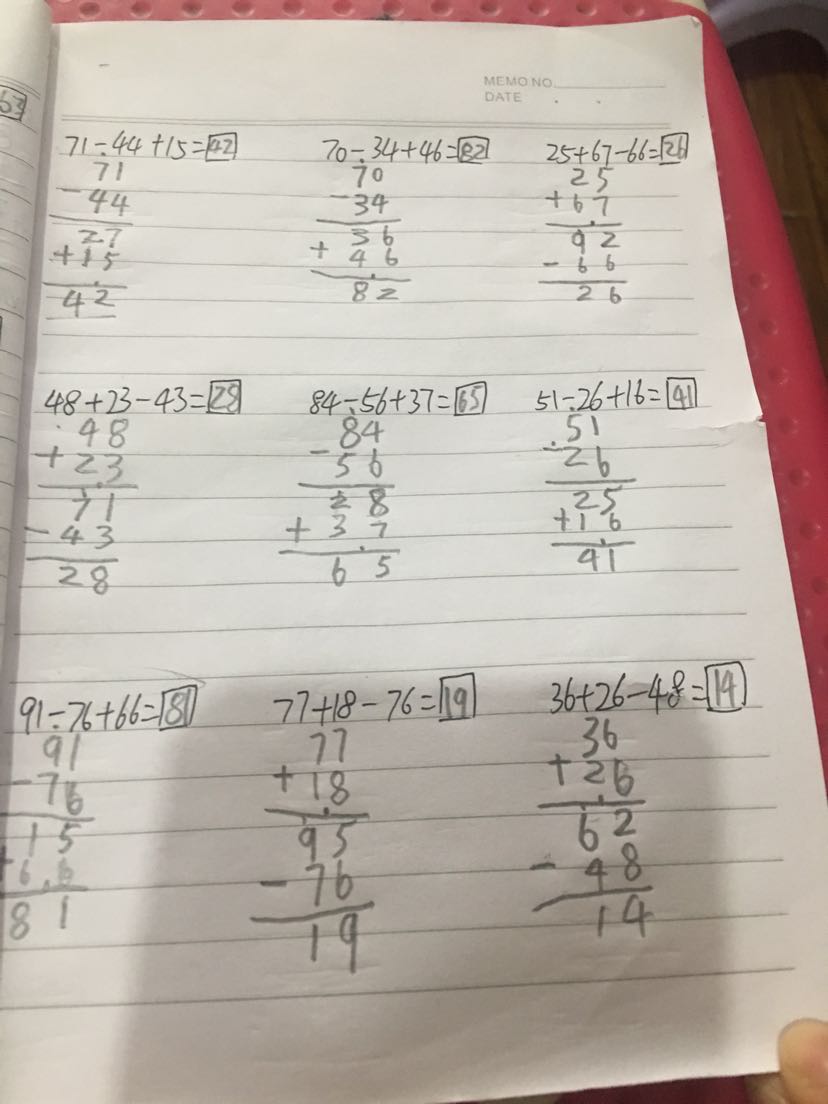 63
MEMO NO.
DATE . .
71-44+15=42
71
-44
27
+15
42
70-34+46=82
70
-34
36
+46
82
25+67-66=26
25
+67
92
-66
26
48+23-43=28
48
+23
71
-43
28
84-56+37=65
84
-56
28
+37
65
51-26+16=41
51
-26
25
+16
41
91-76+66=81
91
-76
15
+66
81
77+18-76=19
77
+18
95
-76
19
36+26-48=14
36
+26
62
-48
14